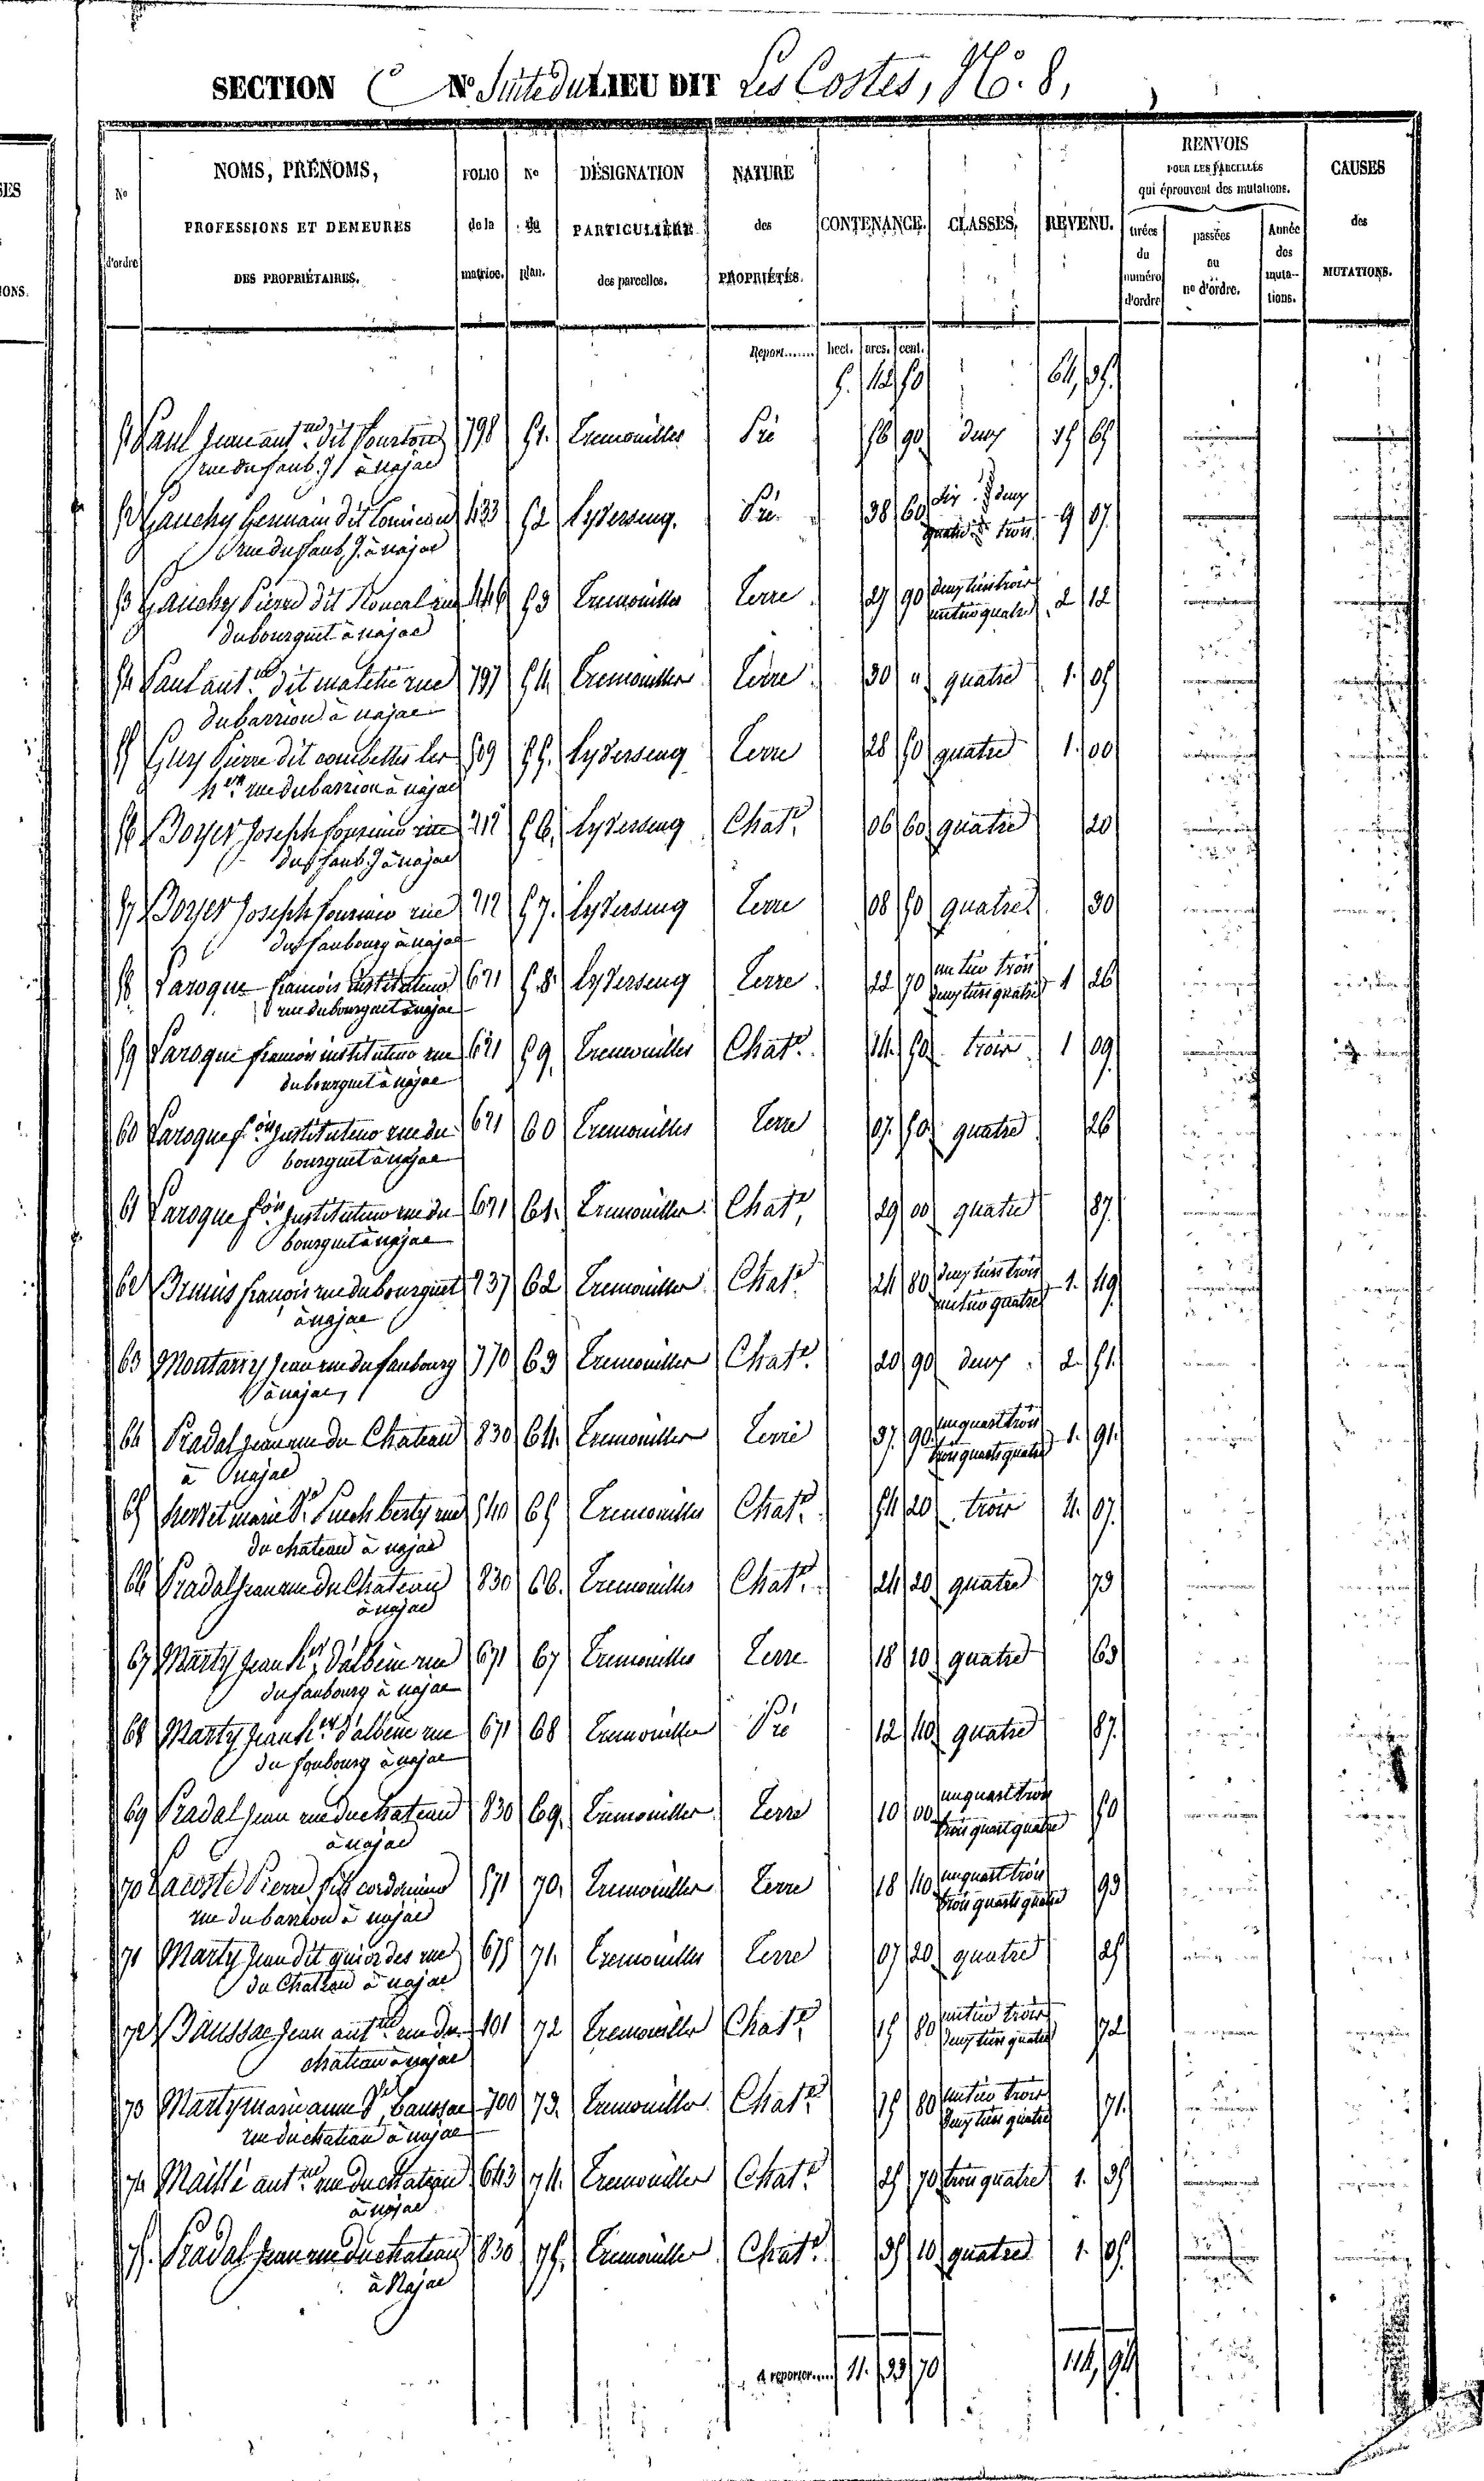 SECTION C N° Suite du LIEU DIT Les Costes, N°. 8,
N° d'ordre
NOMS, PRÉNOMS, PROFESSIONS ET DEMEURES DES PROPRIÉTAIRES.
FOLIO de la matrice.
N° du plan.
DÉSIGNATION PARTICULIÈRE des parcelles.
NATURE des PROPRIÉTÉS.
CONTENANCE.
CLASSES.
REVENU.
RENVOIS POUR LES PARCELLES qui éprouvent des mutations.
tirées du numéro d'ordre
passées au n° d'ordre.
Année des muta-tions.
CAUSES des MUTATIONS.
Report....... hect. ares. cent.
5. 42 50 64, 35.
51 Paul Jean ant.ne dit 798 51. Tremouilles Pré 56 90 deux 65
rue du faub.g à najac
52 Gauchy Germain dit 433 52 Pré 38 60 deux 9 07.
quatre trois
rue du faub.g à najac
53 Gauchy Pierre dit 446 53 Tremouilles Terre 27 90 deux tiers trois 2 12
un tiers quatre
du bourguet à najac
54 Paul ant.ne dit rue 797 54. Tremouilles Terre 30 " quatre 1. 05
du barriou à najac
55 Guy Pierre dit combettes les 509 55. Terre 28 50 quatre 1. 00
h.ers rue du barriou à najac
56 Boyer Joseph rue 212 56. Chat.e 06 60 quatre 20
du faub.g à najac
57 Boyer Joseph rue 212 57. Terre 08 50 quatre 30
du faubourg à najac
58 Laroque francois instituteur 621 58. Terre 22 70 un tiers trois 1 26
deux tiers quatre
rue du bourguet à najac
59 Laroque francois instituteur rue 621 59. Tremouilles Chat.e 14. 50 trois 1 09
du bourguet à najac
60 Laroque f.ois instituteur rue du 621 60 Tremouilles Terre 07. 50 quatre 26
bourguet à najac
61 Laroque f.ois instituteur rue du 621 61. Tremouilles Chat.e 29 00 quatre 87.
bourguet à najac
62 françois rue du bourguet 237 62 Tremouilles Chat.e 24 80 deux tiers trois 1. 49
un tiers quatre
à najac
63 Jean rue du faubourg 770 63 Tremouilles Chat.e 20 90 deux 2. 51.
à najac
64 Pradal jean rue du Chateau 830 64. Tremouilles Terre 37. 90 un quart trois 1. 91.
trois quarts quatre
à Najac
65 marie rue 540 65 Tremouilles Chat.e 54 20 trois 4. 07.
du chateau à najac
66 Pradal jean rue du Chateau 830 66. Tremouilles Chat.e 24 20 quatre 73
à najac
67 Marty Jean rue 671 67 Tremouilles Terre 18 10 quatre 63
du faubourg à najac
68 Marty Jean rue 671 68 Tremouilles Pré 12 40 quatre 87.
du faubourg à najac
69 Pradal Jean rue du chateau 830 69. Tremouilles Terre 10 00 un quart trois 50
trois quarts quatre
à najac
70 Lacoste Pierre fils cordonnier 571 70. Tremouilles Terre 18 40 un quart trois 93
trois quarts quatre
rue du barriou à najac
71 Marty Jean dit rue 675 71. Tremouilles Terre 07 20 quatre 25
du Chateau à najac
72 Baussac Jean ant.ne rue du 101 72 Tremouilles Chat.e 15 80 un tiers trois 72
deux tiers quatre
chateau à najac
73 Marty marie anne V.e baussac 700 73. Tremouilles Chat.e 15 80 un tiers trois 71.
deux tiers quatre
rue du chateau à najac
74 Maillé ant.ne rue du chateau 643 74. Tremouilles Chat.e 25 70 trois quatre 1. 35
à najac
75. Pradal jean rue du chateau 830 75. Tremouilles Chat.e 35 10 quatre 1. 05.
à Najac
A reporter..... 11. 33 70 114, 94